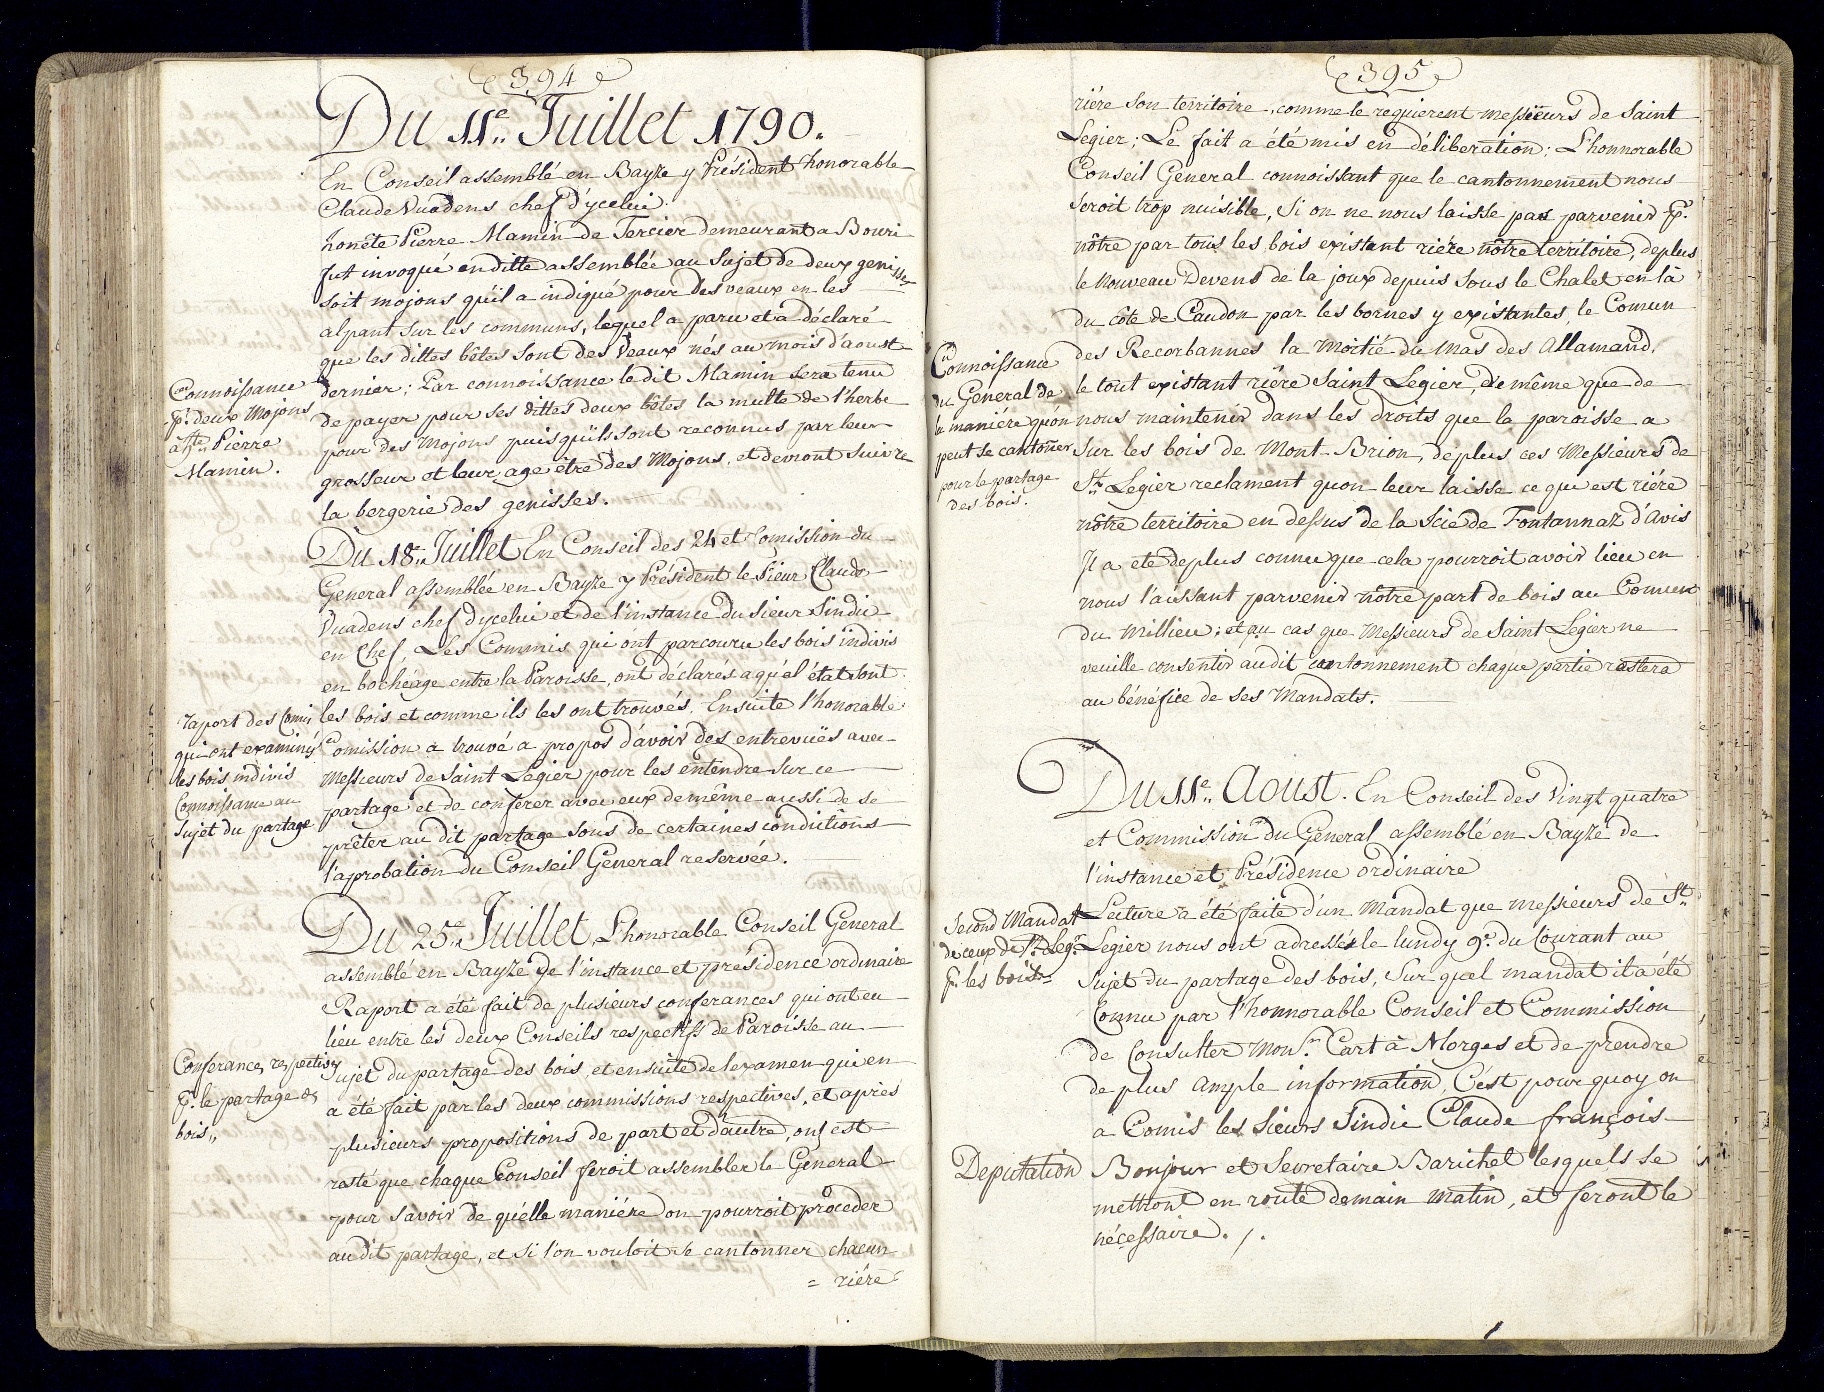 394
Du 11.e Juillet 1790.
En Conseil assemblé en Bayze y Président honorable
Claude Vuadens chef d'ycelui.
honête Pierre Mamin de Tercier demeurant a Bouri
fut invoqué en ditte assemblée au Sujet de deux genisses
soit mojons qu'il a indiqué pour des veaux en les
alpant sur les communs, lequel a paru et a déclaré
que les dittes bêtes sont des Veaux nés au mois d'aoust
Connoissance
p.r deux Mojons
à h.te Pierre
Mamin.
dernier; Par connoissance le dit Mamin sera tenu
de payer pour ses dittes deux bêtes la multe de l'herbe
pour des Mojons puisqu'ils sont reconnus par leur
grosseur et leur age être des Mojons, et devront suivre
la bergerie des genisses.
Du 18.e Juillet En Conseil des 24 et Comission du
General assemblée en Bayze y Président le Sieur Claude
Vuadens chef d'ycelui et de l'instance du Sieur Sindic
en Chef Les Commis qui ont parcouru les bois indivis
en bochéage entre la Paroisse, ont déclarés a quél état sont
raport des Comis
qui ont examinés
les bois indivis
Connoissance au
Sujet du partage
les bois et comme ils les ont trouvés. Ensuite l'honorable
Comission a trouvé a propos d'avoir des entrevuës avec
Messieurs de Saint Legier pour les entendre sur ce
partage et de conferer avec eux de même aussi de se
prêter au dit partage sous de certaines conditions
l'aprobation du Conseil General reservée.
Du 25.e Juillet L'honorable Conseil General
assemblé en Bayze de l'instance et présidence ordinaire
Raport a été fait de plusieurs conferances qui ont eu
lieu entre les deux Conseils respectifs de Paroisse au
Conferances respectives
p.r le partage des
bois,,
Sujet du partage des bois, et ensuite de l'examen qui en
a été fait par les deux commissions respectives, et après
plusieurs propositions de part et d'autre, on est
resté que chaque Conseil feroit assembler le General
pour savoir de qu'elle maniére on pourroit proceder
au dit partage, et si l'on vouloit se cantonner chacun
= riére
395
riére son territoire, comme le requierent messieurs de Saint
Legier; Le fait a été mis en déliberation; L'honnorable
Conseil General connoissant que le cantonnement nous
seroit trop nuisible, Si on ne nous laisse pas parvenir p.r
nôtre par tous les bois existant riére nôtre territoire, deplus
le nouveau Devens de la joux depuis sous le Chalet en là
du côte de Caudon par les bornes y existantes, le Comun
Connoissance
du General de
la maniere qu'on
peut se cantoner
pour le partage
des bois.
des Recorbannes la moitié du Mas des Allamand,
le tout existant riére Saint Legier, de même que de
nous maintenir dans les droits que la paroisse a
Sur les bois de Mont-Brion, deplus ces Messieurs de
S.t Legier reclament quon leur laisse ce qui est riére
nôtre territoire en dessus de la Scie de Fontannaz d'Avis
Il a ete deplus connu que cela pourroit avoir lieu en
nous laissant parvenir nôtre part de bois au Comun
du millieu; et au cas que Messieurs de Saint Legier ne
veuille consentir audit cantonnement chaque partie restera
au bénéfice de ses Mandats.
Du 11.e Aoust. En Conseil des Vingt quatre
et Commission du General assemblé en Bayze de
l'instance et Présidence ordinaire
Second Mandat
de ceux de S.t Leg.r
p.r les bois
Lecture a été faite d'un Mandat que messieurs de S.t
Legier nous ont adressés le lundy 9.e du Courant au
Sujet du partage des bois, Sur quel mandat il a été
Connu par l'honnorable Conseil et Commission
de Consulter Mons.r Cart à Morges et de prendre
de plus ample information, C'ést pourquoy on
a Comis les Sieurs Sindic Claude françois
Deputation
Bonjour et Secretaire Barichet lesquels se
mettront en route demain matin, et feront le
nécessaire. /.